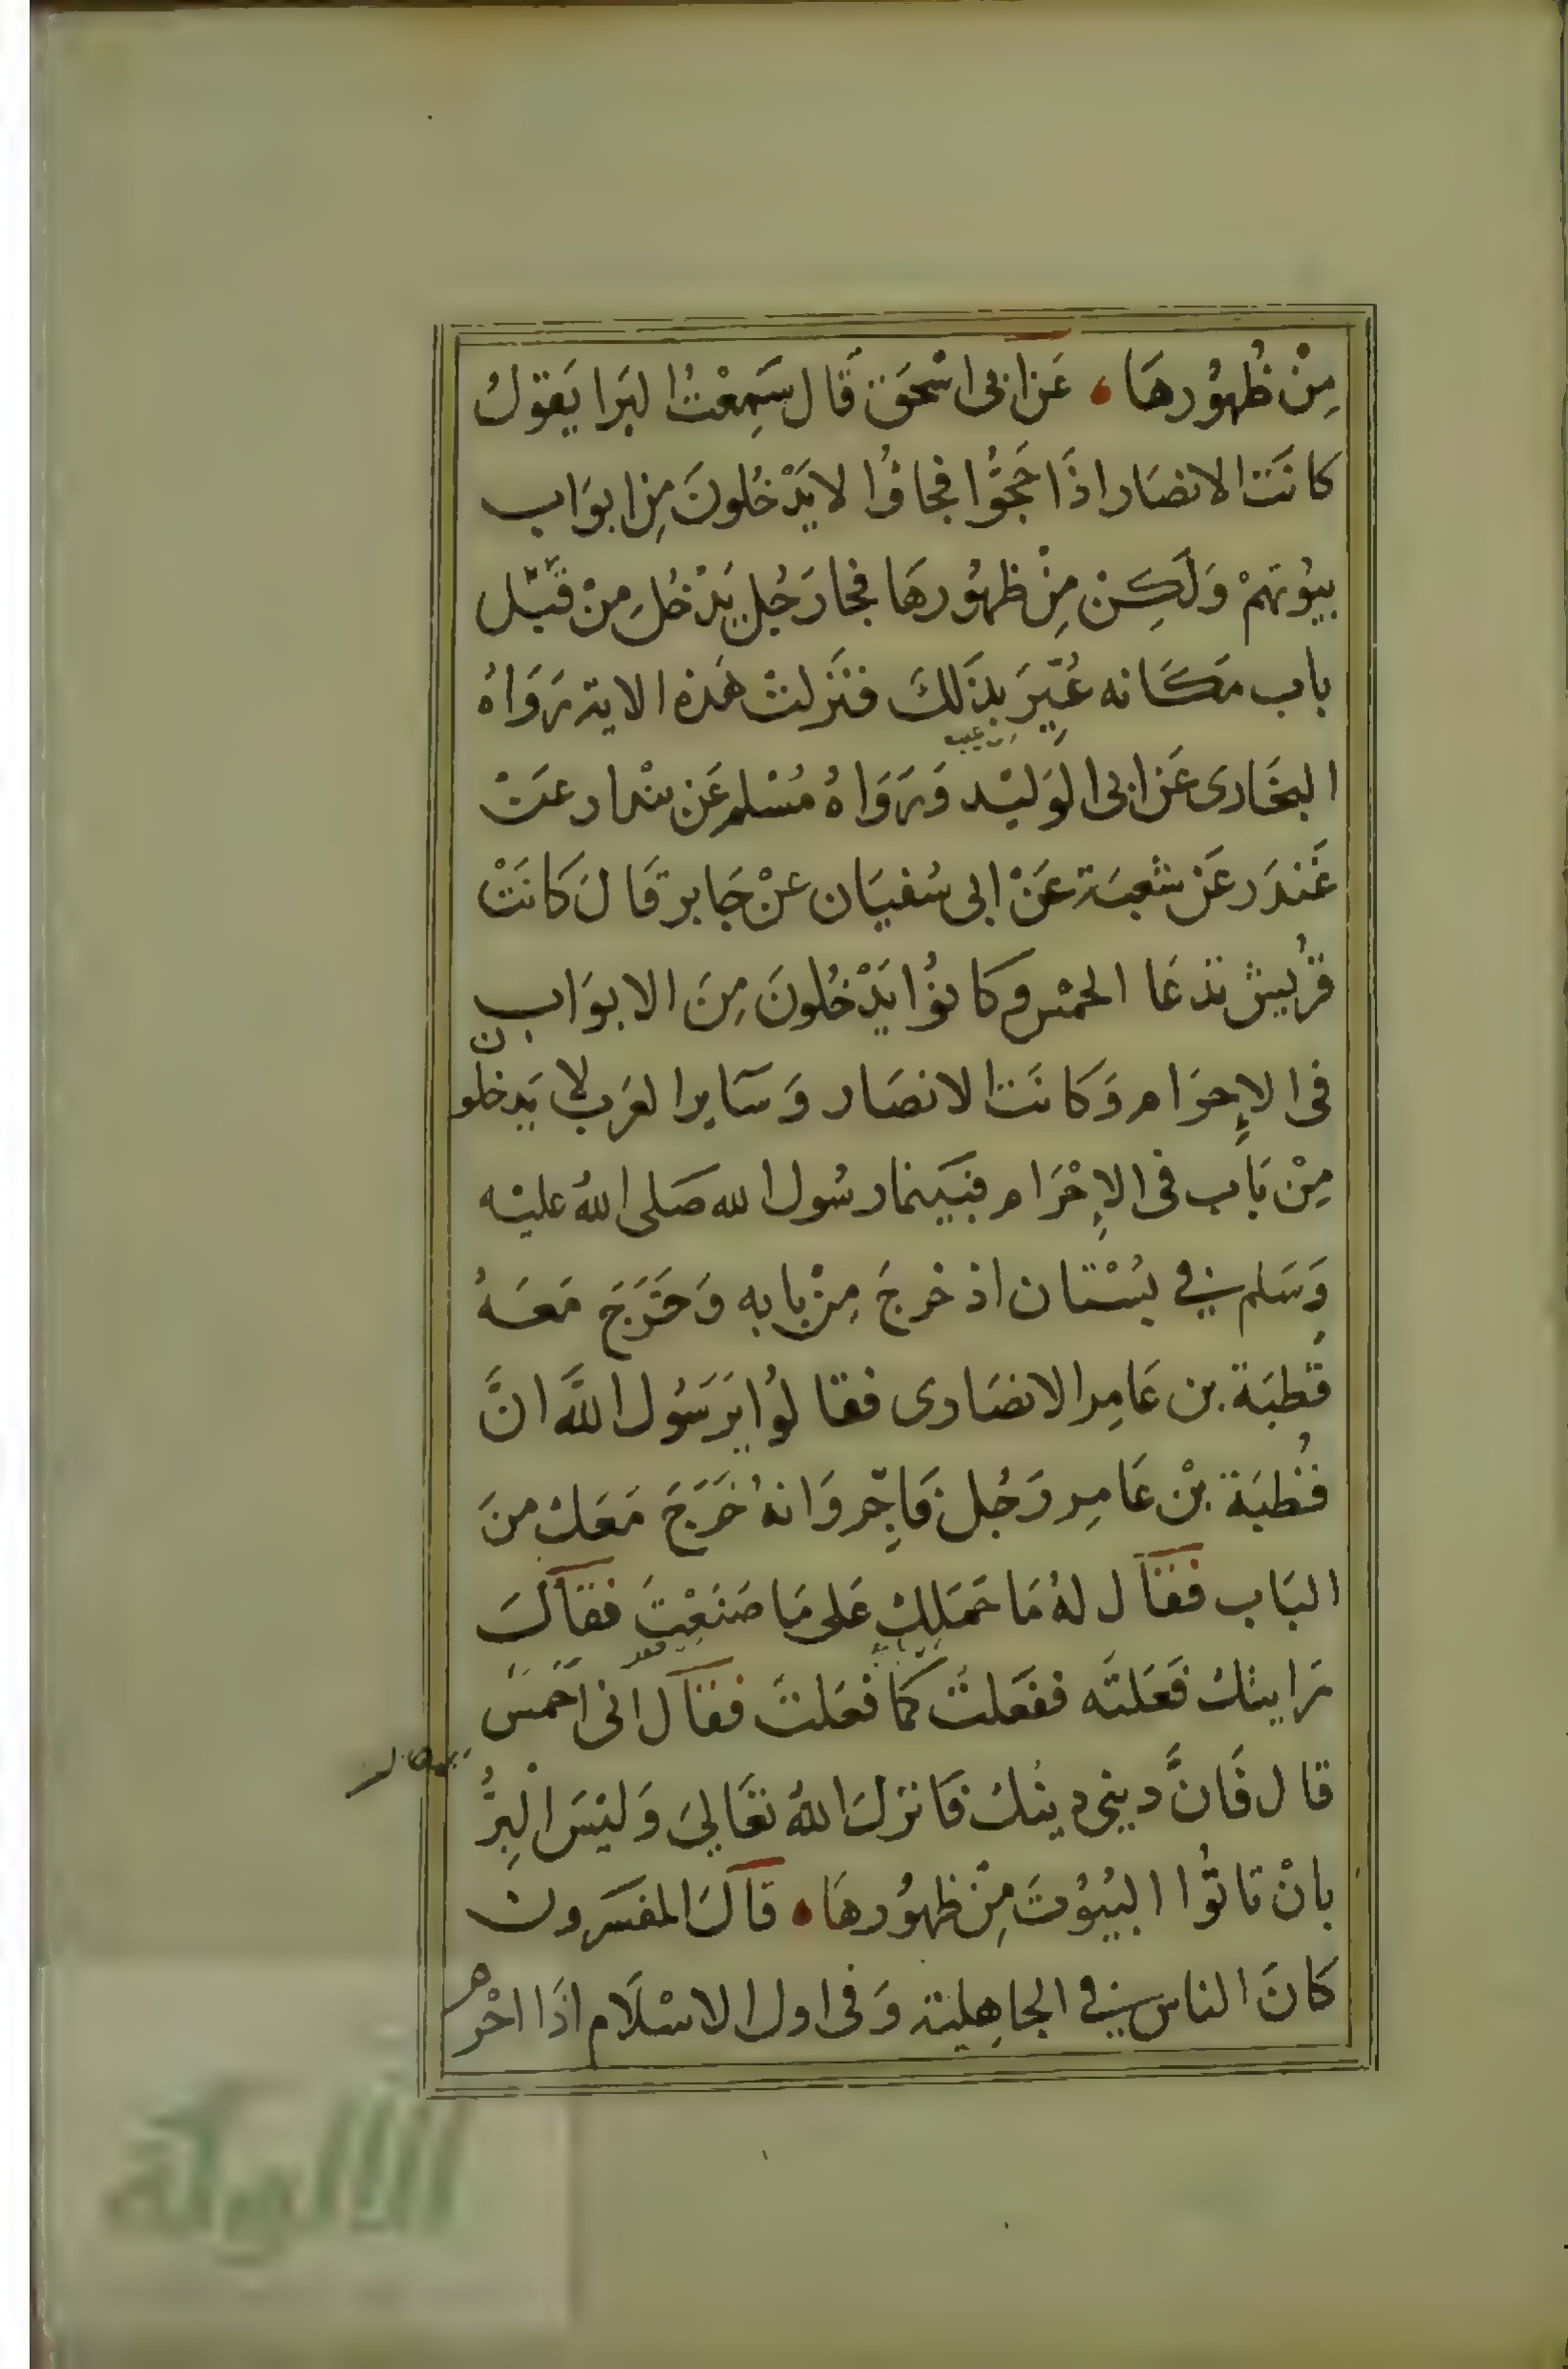 مِنْ ظُهُورهَا ، عَن ابى اسْحَق قَال سَمِعْتُ البَرا يَقوُلُ
كانَت الانصَار اذَا حَجّوُا فجاؤُا لا يَدْخُلونَ مِن ابوَاب
بيوُتهَمْ وَلَكِنْ مِنْ ظهُورهَا فجا رَجُل يَدْخُل مِنْ قبَل
باب مَكَانه عُيِّرَ بِذَلكَ فنَزلتْ هَذه الاية رَوَاهُ
البخَارى عَن ابى الوَليْد وَرَوَاهُ مُسْلم عَن بنْدار عَنْ
غنْدَر عَن شعبَة عَنْ ابى سُفيَان عنْ جَابر قَالَ كَانَتْ
قرُيش تدعَا الحمْس وكانوُا يَدْخُلونَ مِنَ الابوَاب
فى الاِحرَام وَكَانَت الانصَار وَسَآير العَرب لا يَدخلون
مِنْ بَاب فى الاِحْرَام فبَينما رسُول الله صَلى اللهُ عليْه
وَسَلم فِي بُسْتان اذ خرجَ مِنْ بابه وَخَرَجَ مَعَهُ
قُطبَة بن عَامِر الانصَارى فقالوُا يَرَسُول اللَّه انَّ
قُطبَة بْن عَامِر رَجُل فَاجِر وَانهُ خَرَجَ مَعَكَ منَ
البَاب فقَآل لهُ مَا حَمَلكَ عَلى مَا صَنَعْتَ فقآلَ
رَايتكَ فَعَلتَه ففَعَلتُ كمَا فعَلتَ فقآل انى احَمسَ
قال فَانَّ دينى دينُكَ فَانزلَ اللهُ تعَاليَ وَليْسَ الْبِرُّ
بانْ تاتُوا البيُوُتَ مِنْ ظهُورهَا ، قآلَ المفسَرون
كانَ الناس فِي الجاهِليَة وَفى اول الاسْلَام اذَا احْرم
الألوكة